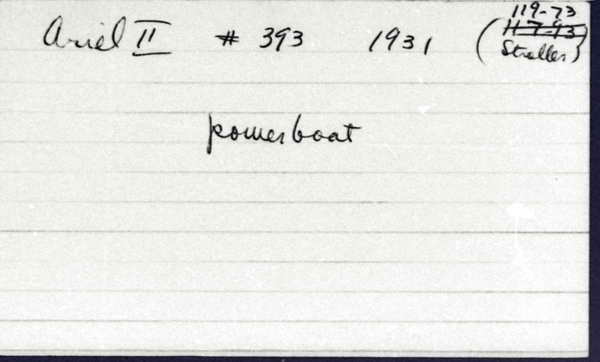 Ariel II # 393 1931 (119-73
117-93
Stroller)
powerboat